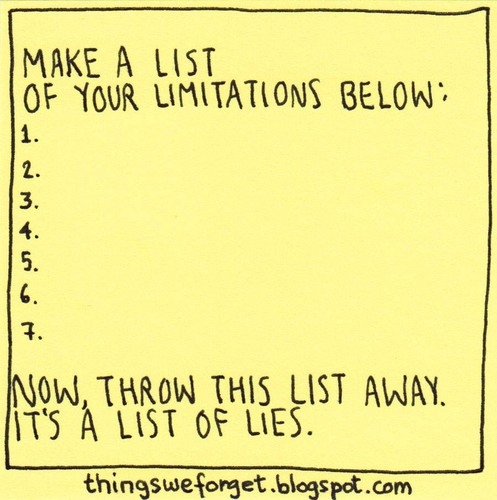 MAKE A LIST
OF YOUR LIMITATIONS BELOW:
1.
2.
3.
4.
5.
6.
7.
NOW, THROW THIS LIST AWAY.
IT'S A LIST OF LIES.
thingsweforget.blogspot.com